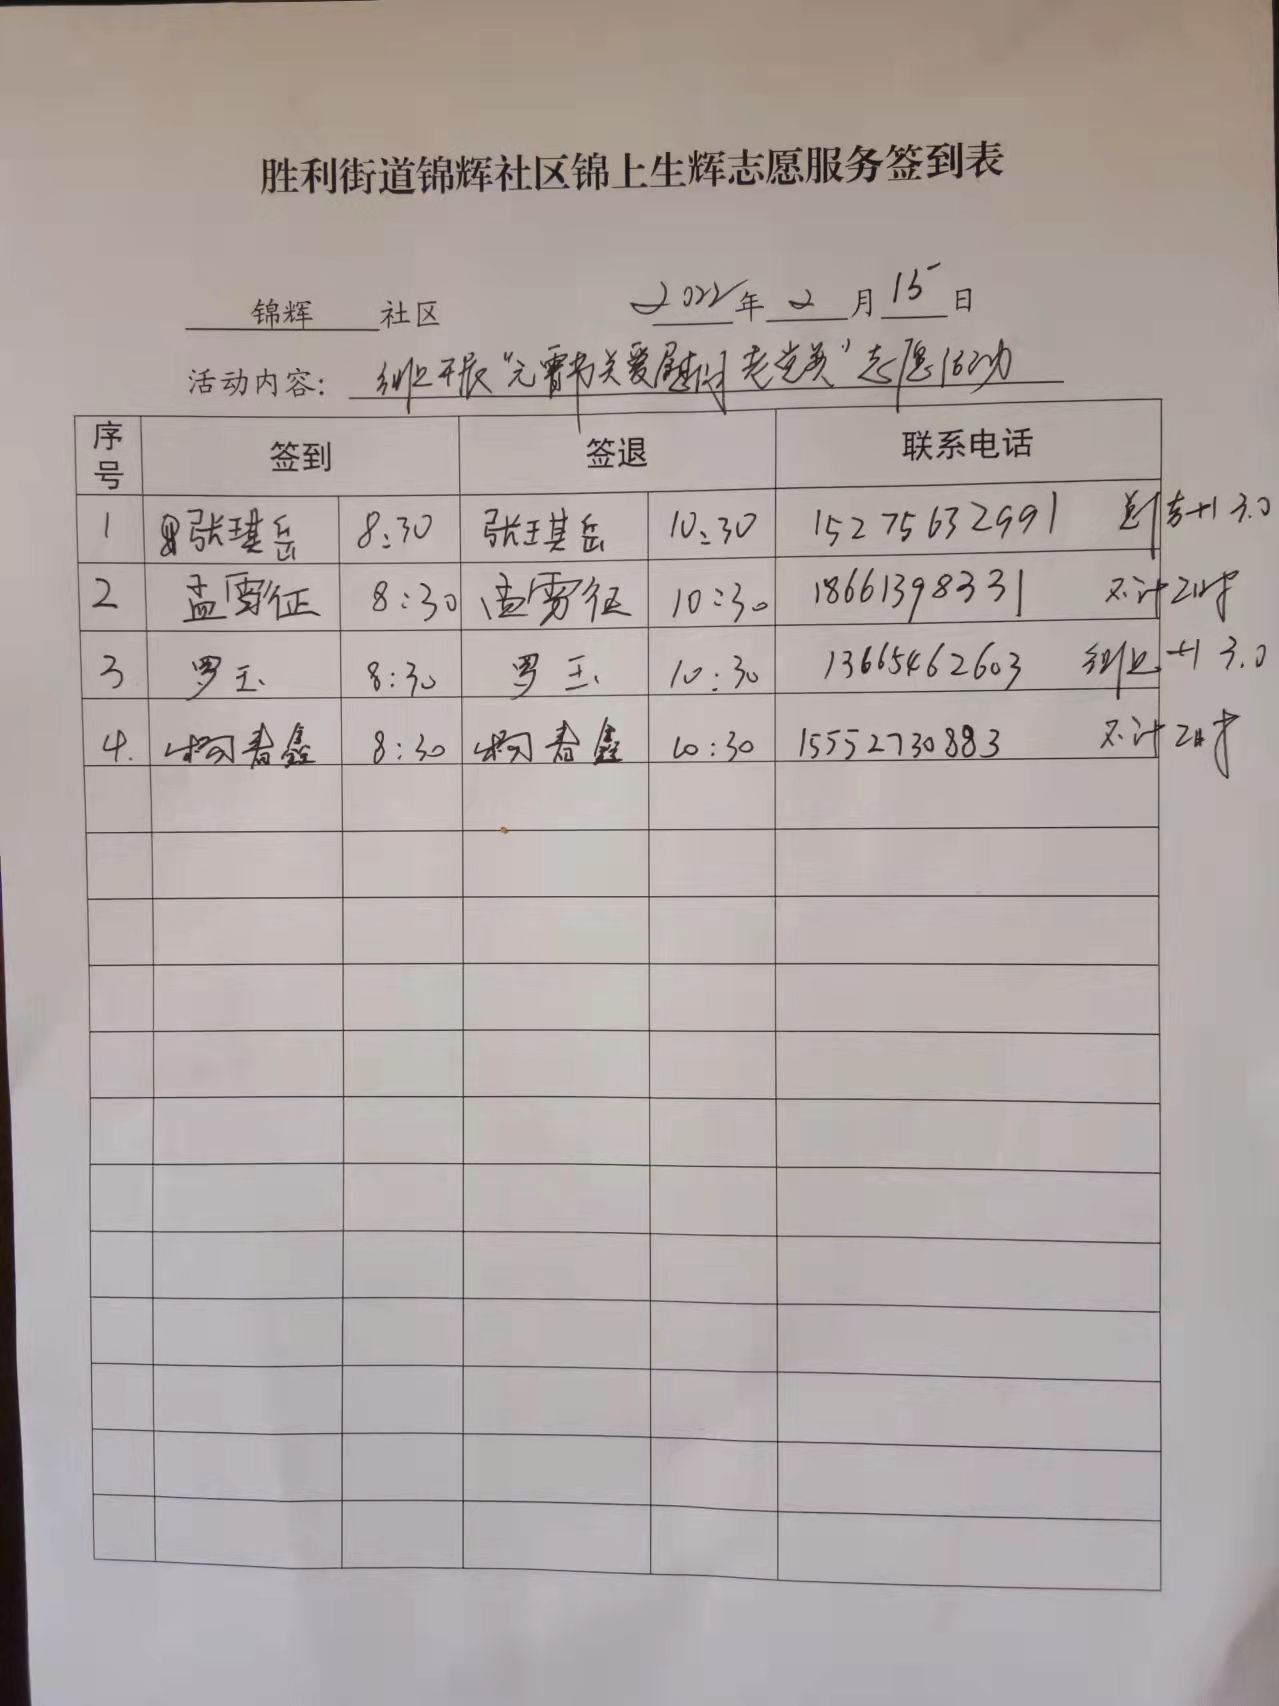 胜利街道锦辉社区锦上生辉志愿服务签到表
锦辉 社区 2022年 2 月 15 日
活动内容: 组织开展"元宵节关爱慰问老党员"志愿活动
序号 签到 签退 联系电话
1 张琪岳 8:30 张琪岳 10:30 15275632991 +1 3.0
2 孟雾征 8:30 孟雾征 10:30 18661398331 不计工时
3 罗玉 8:30 罗玉 10:30 13665462603 组织+1 3.0
4. 柯春鑫 8:30 柯春鑫 10:30 15552730883 不计工时